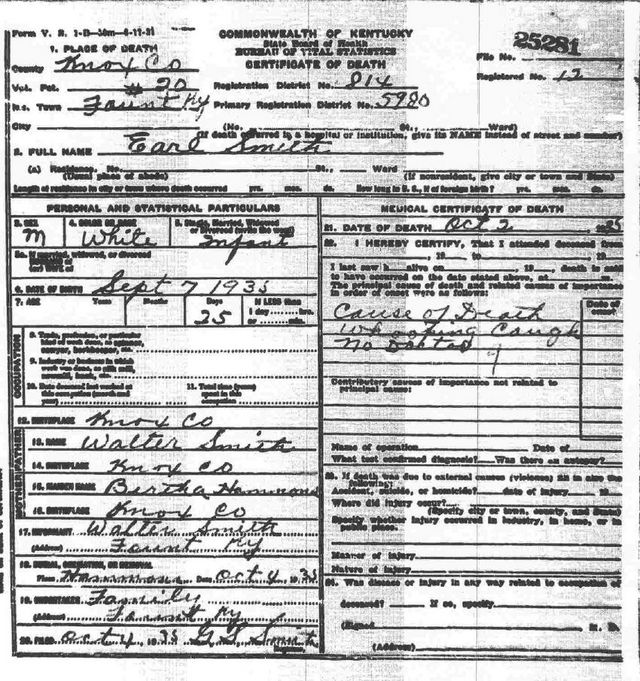 Form V. S. 1-D-50m-6-17-31
COMMONWEALTH OF KENTUCKY
State Board of Health
BUREAU OF VITAL STATISTICS
CERTIFICATE OF DEATH
25281
File No.
Registered No. 12
1. PLACE OF DEATH
County Knox Co
Vot. Pct. #20
Registration District No. 814
Inc. Town Fount Ky
Primary Registration District No. 5980
City (No. St., Ward)
(If death occurred in a hospital or institution, give its NAME instead of street and number)
2. FULL NAME Earl Smith
(a) Residence. No. St., Ward
(Usual place of abode) (If nonresident, give city or town and State)
Length of residence in city or town where death occurred yrs. mos. ds. How long in U. S., if of foreign birth? yrs. mos. ds.
PERSONAL AND STATISTICAL PARTICULARS
3. SEX M
4. COLOR OR RACE White
5. Single, Married, Widowed or Divorced (write the word) Infant
5a. If married, widowed, or divorced
HUSBAND of
(or) WIFE of
6. DATE OF BIRTH Sept 7 1935
7. AGE Years Months Days 25 If LESS than 1 day hrs. or min.
OCCUPATION
8. Trade, profession, or particular kind of work done, as spinner, sawyer, bookkeeper, etc.
9. Industry or business in which work was done, as silk mill, sawmill, bank, etc.
10. Date deceased last worked at this occupation (month and year)
11. Total time (years) spent in this occupation
12. BIRTHPLACE Knox Co
FATHER
13. NAME Walter Smith
14. BIRTHPLACE Knox Co
MOTHER
15. MAIDEN NAME Bertha Hammons
16. BIRTHPLACE Knox Co
17. INFORMANT Walter Smith
(Address) Fount Ky
18. BURIAL, CREMATION, OR REMOVAL
Place Hammons Date Oct 4 1935
19. UNDERTAKER Family
(Address) Fount Ky
20. FILED Oct 4 1935 Smith
MEDICAL CERTIFICATE OF DEATH
21. DATE OF DEATH Oct 2 1935
22. I HEREBY CERTIFY, That I attended deceased from
, 19 to , 19
I last saw h alive on , 19 , death is said
to have occurred on the date stated above, at m.
The principal cause of death and related causes of importance
in order of onset were as follows:
Date of onset
Cause of Death
Whooping Caugh
No Doktor
Contributory causes of importance not related to
principal cause:
Name of operation Date of
What test confirmed diagnosis? Was there an autopsy?
23. If death was due to external causes (violence) fill in also the
following:
Accident, suicide, or homicide? date of injury 19
Where did injury occur?
(Specify city or town, county, and State)
Specify whether injury occurred in industry, in home, or in
public place.
Manner of injury
Nature of injury
24. Was disease or injury in any way related to occupation of
deceased? If so, specify
(Signed M. D.
(Address)